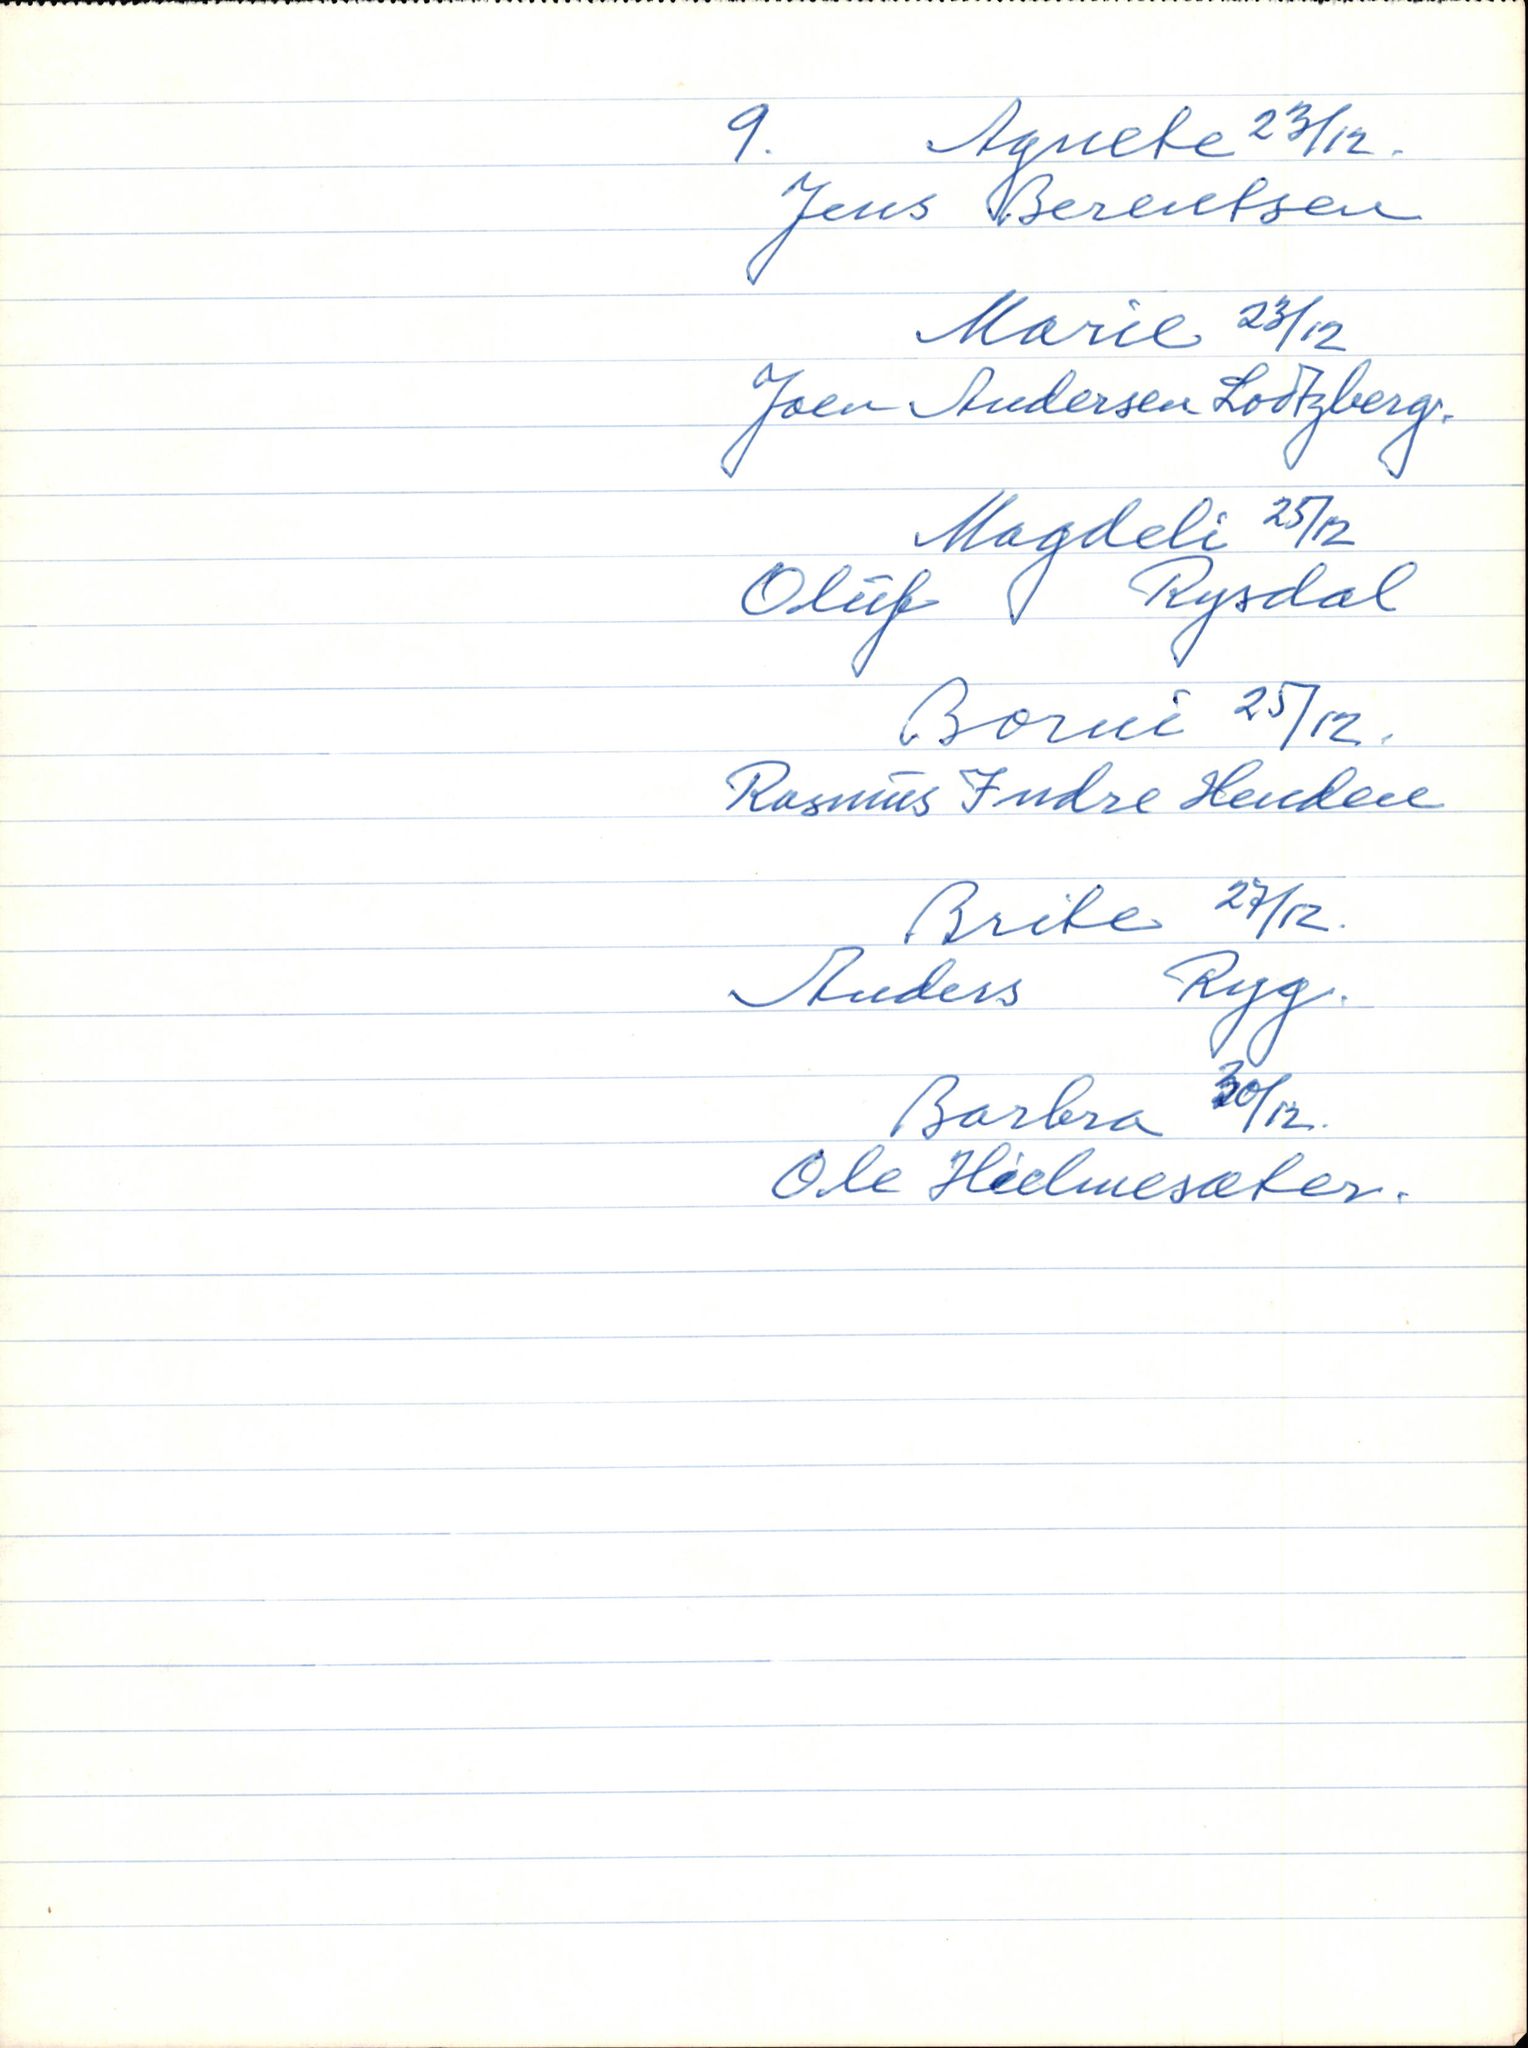 9. Agnete 23/12.
Jens Berentsen
Marie 23/12
Joen Andersen Lodtzberg.
Magdeli 25/12
Olūf Rysdal
Borni 25/12.
Rasmūs Indre Henden
Brite 27/12.
Anders Ryg.
Barbra 30/12.
Ole Hielmesæter.